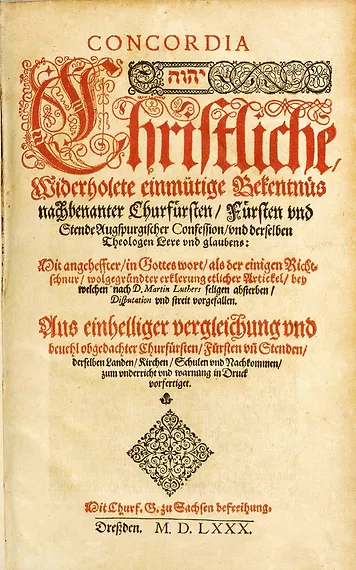 CONCORDIA
יהוה
Christliche,
Widerholete einmütige Bekentnüs
nachbenanter Churfürsten/ Fürsten vnd
Stende Augspurgischer Confession/vnd derselben
Theologen Lere vnd glaubens:
Mit angeheffter/in Gottes wort/als der einigen Richt-
schnur/wolgegründter erklerung etlicher Artickel/bey
welchen nach D. Martin Luthers seligen absterben/
Disputation vnd streit vorgefallen.
Aus einhelliger vergleichung vnd
beuehl obgedachter Churfürsten/Fürsten vñ Stenden/
derselben Landen/Kirchen/Schulen vnd Nachkommen/
zum vnderricht vnd warnung in Druck
vorfertiget.
Mit Churf. G. zu Sachsen befreihung.
Dreßden. M. D. LXXX.